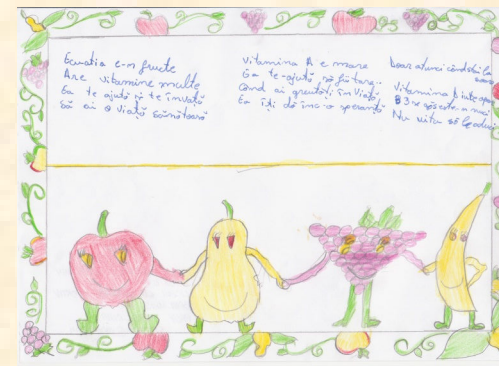 Ecuatia e-n fructe
Are vitamine multe
Ea te ajută și te învață
Să ai o viață sănătoasă
Vitamina A e mare
Ea te-ajută să fii tare.
Când ai greutăți în viață
Ea îți dă înc-o speranță
Doar atunci când
Vitamina
B3 nuci
Nu uita să